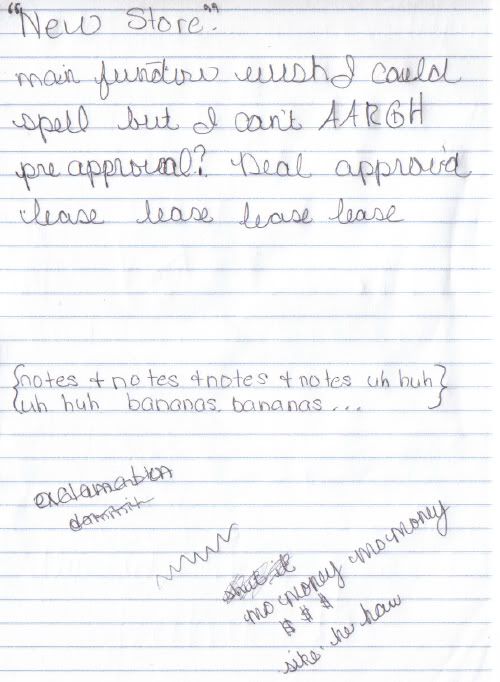 "New Store."
main function wish I could
spell but I can't AARGH
pre approval? Deal approv'd
lease lease lease lease
{notes + notes + notes + notes uh huh}
{uh huh bananas, bananas...}
exclamation
dammit
shut it
mo money mo money
$ $ $
sike he haw